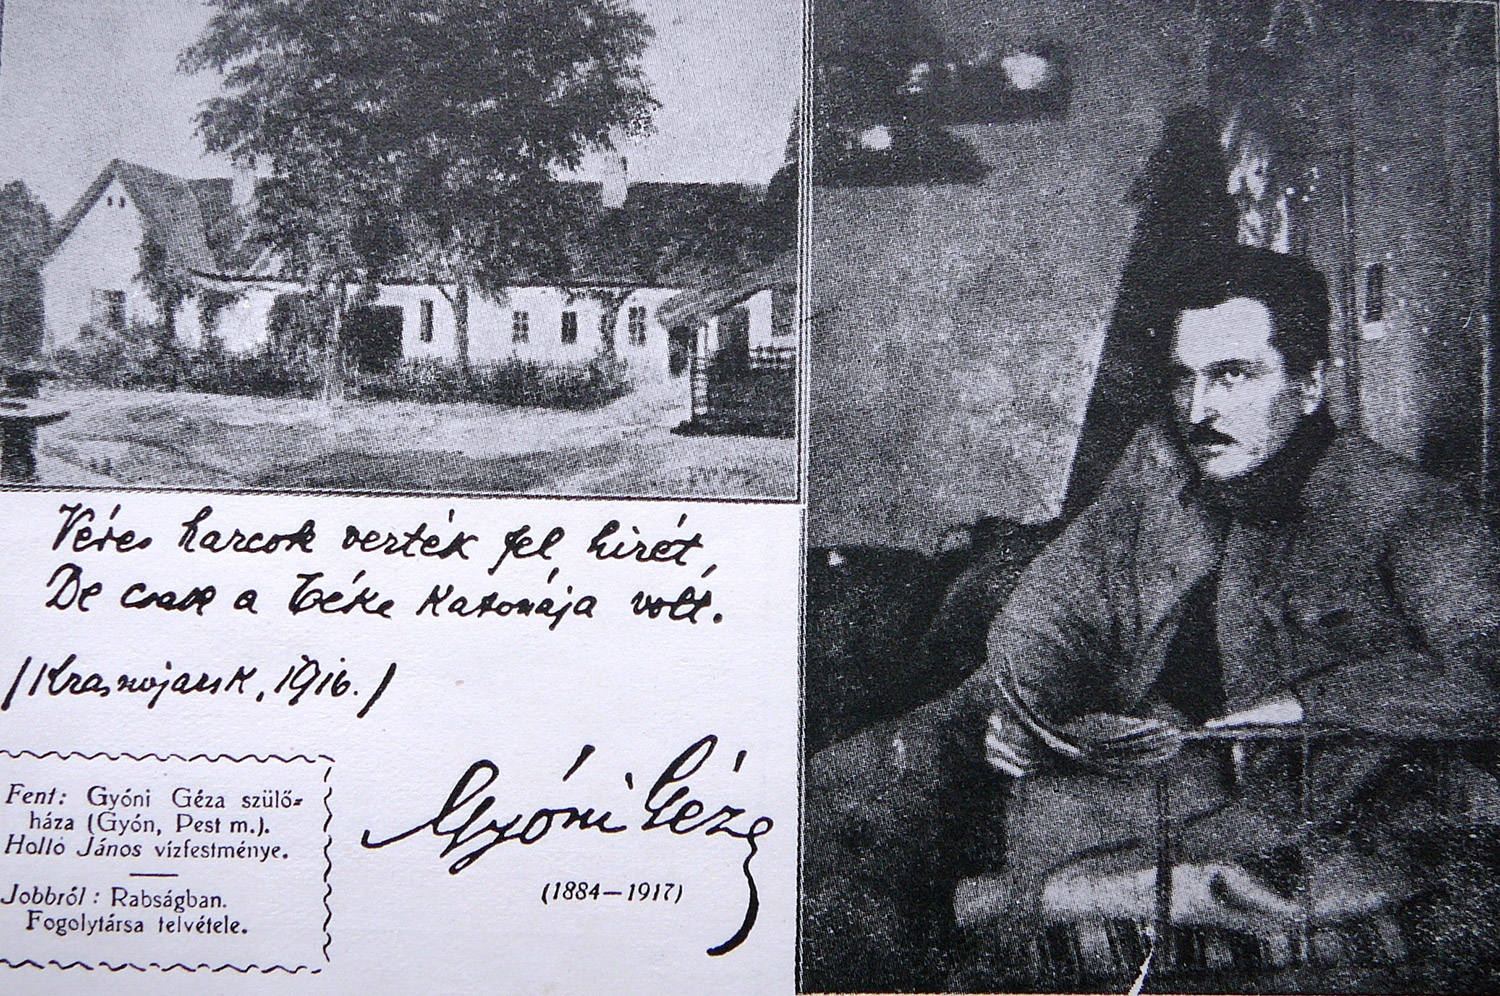 Véres harcok verték fel hirét,
De csak a béke katonája volt.
/Krasnojarsk, 1916./
Gyóni Géza
(1884—1917)
Fent: Gyóni Géza szülő-
háza (Gyón, Pest m.).
Holló János vízfestménye.
Jobbról: Rabságban.
Fogolytársa felvétele.